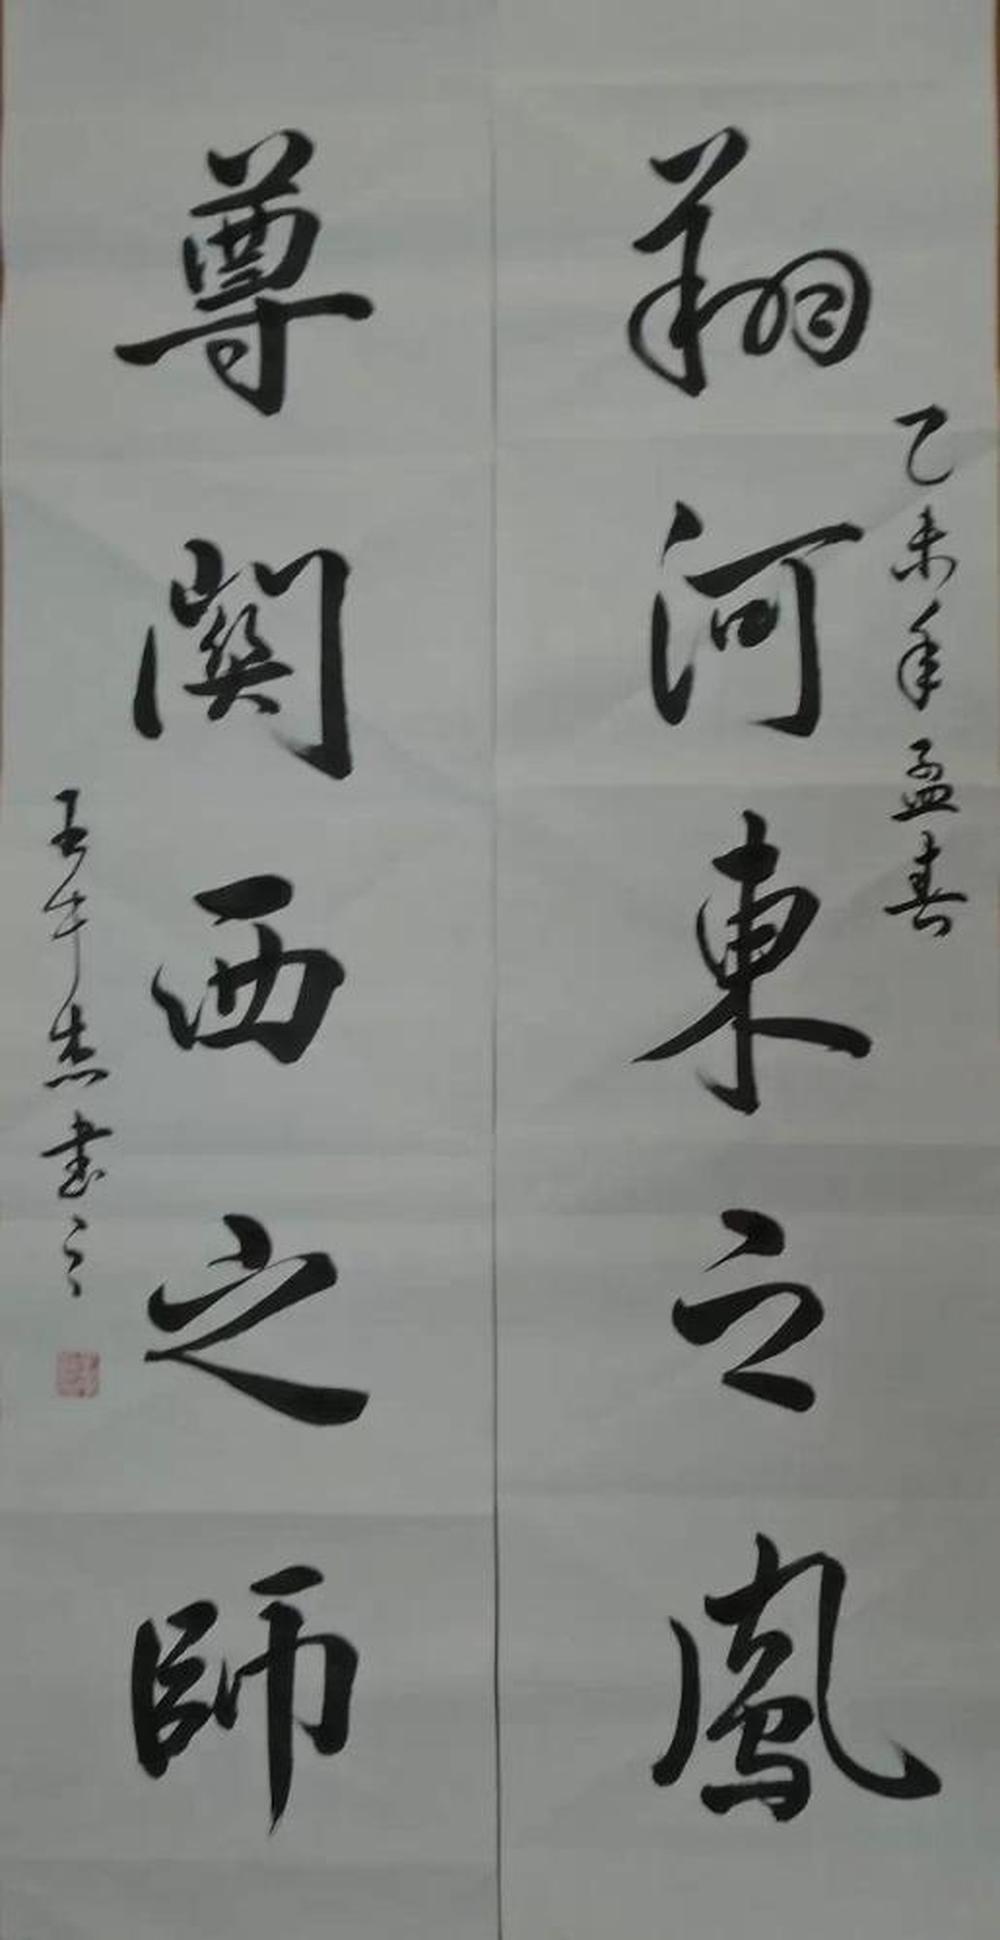 乙未年孟春
翔河東之鳳
尊關西之師
王午杰書之